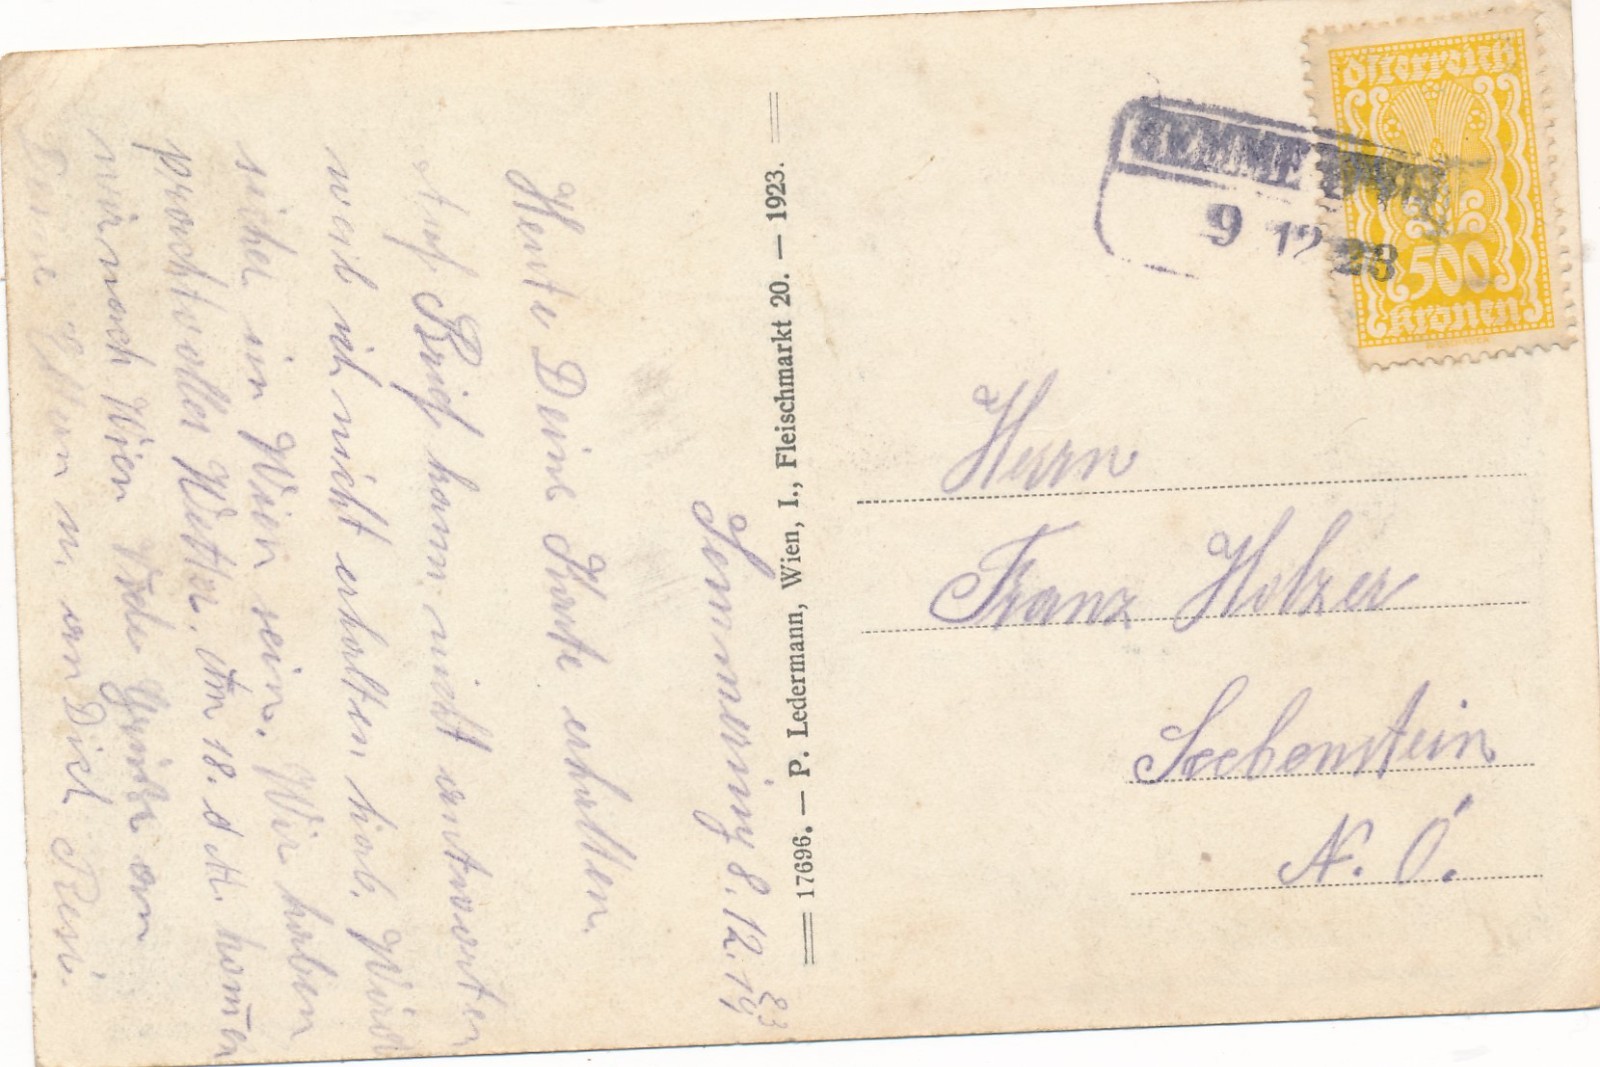 Semmering 8. 12. 1923
Heute Deine Karte erhalten.
Auf Brief kann nicht antworten
weil ich nicht erhalten hab. Wird
sicher in Wien sein. Wir haben
prachtvolles Wetter. Am 18. d. M. kom̄en
wir nach Wien Viele Grüße an
Deine Eltern u. an Dich Resi.
17696. — P. Ledermann, Wien, I., Fleischmarkt 20. — 1923.
österreich
500
kronen
9 12 23
Herrn
Franz Holzer
Seebenstein
N. Ö.